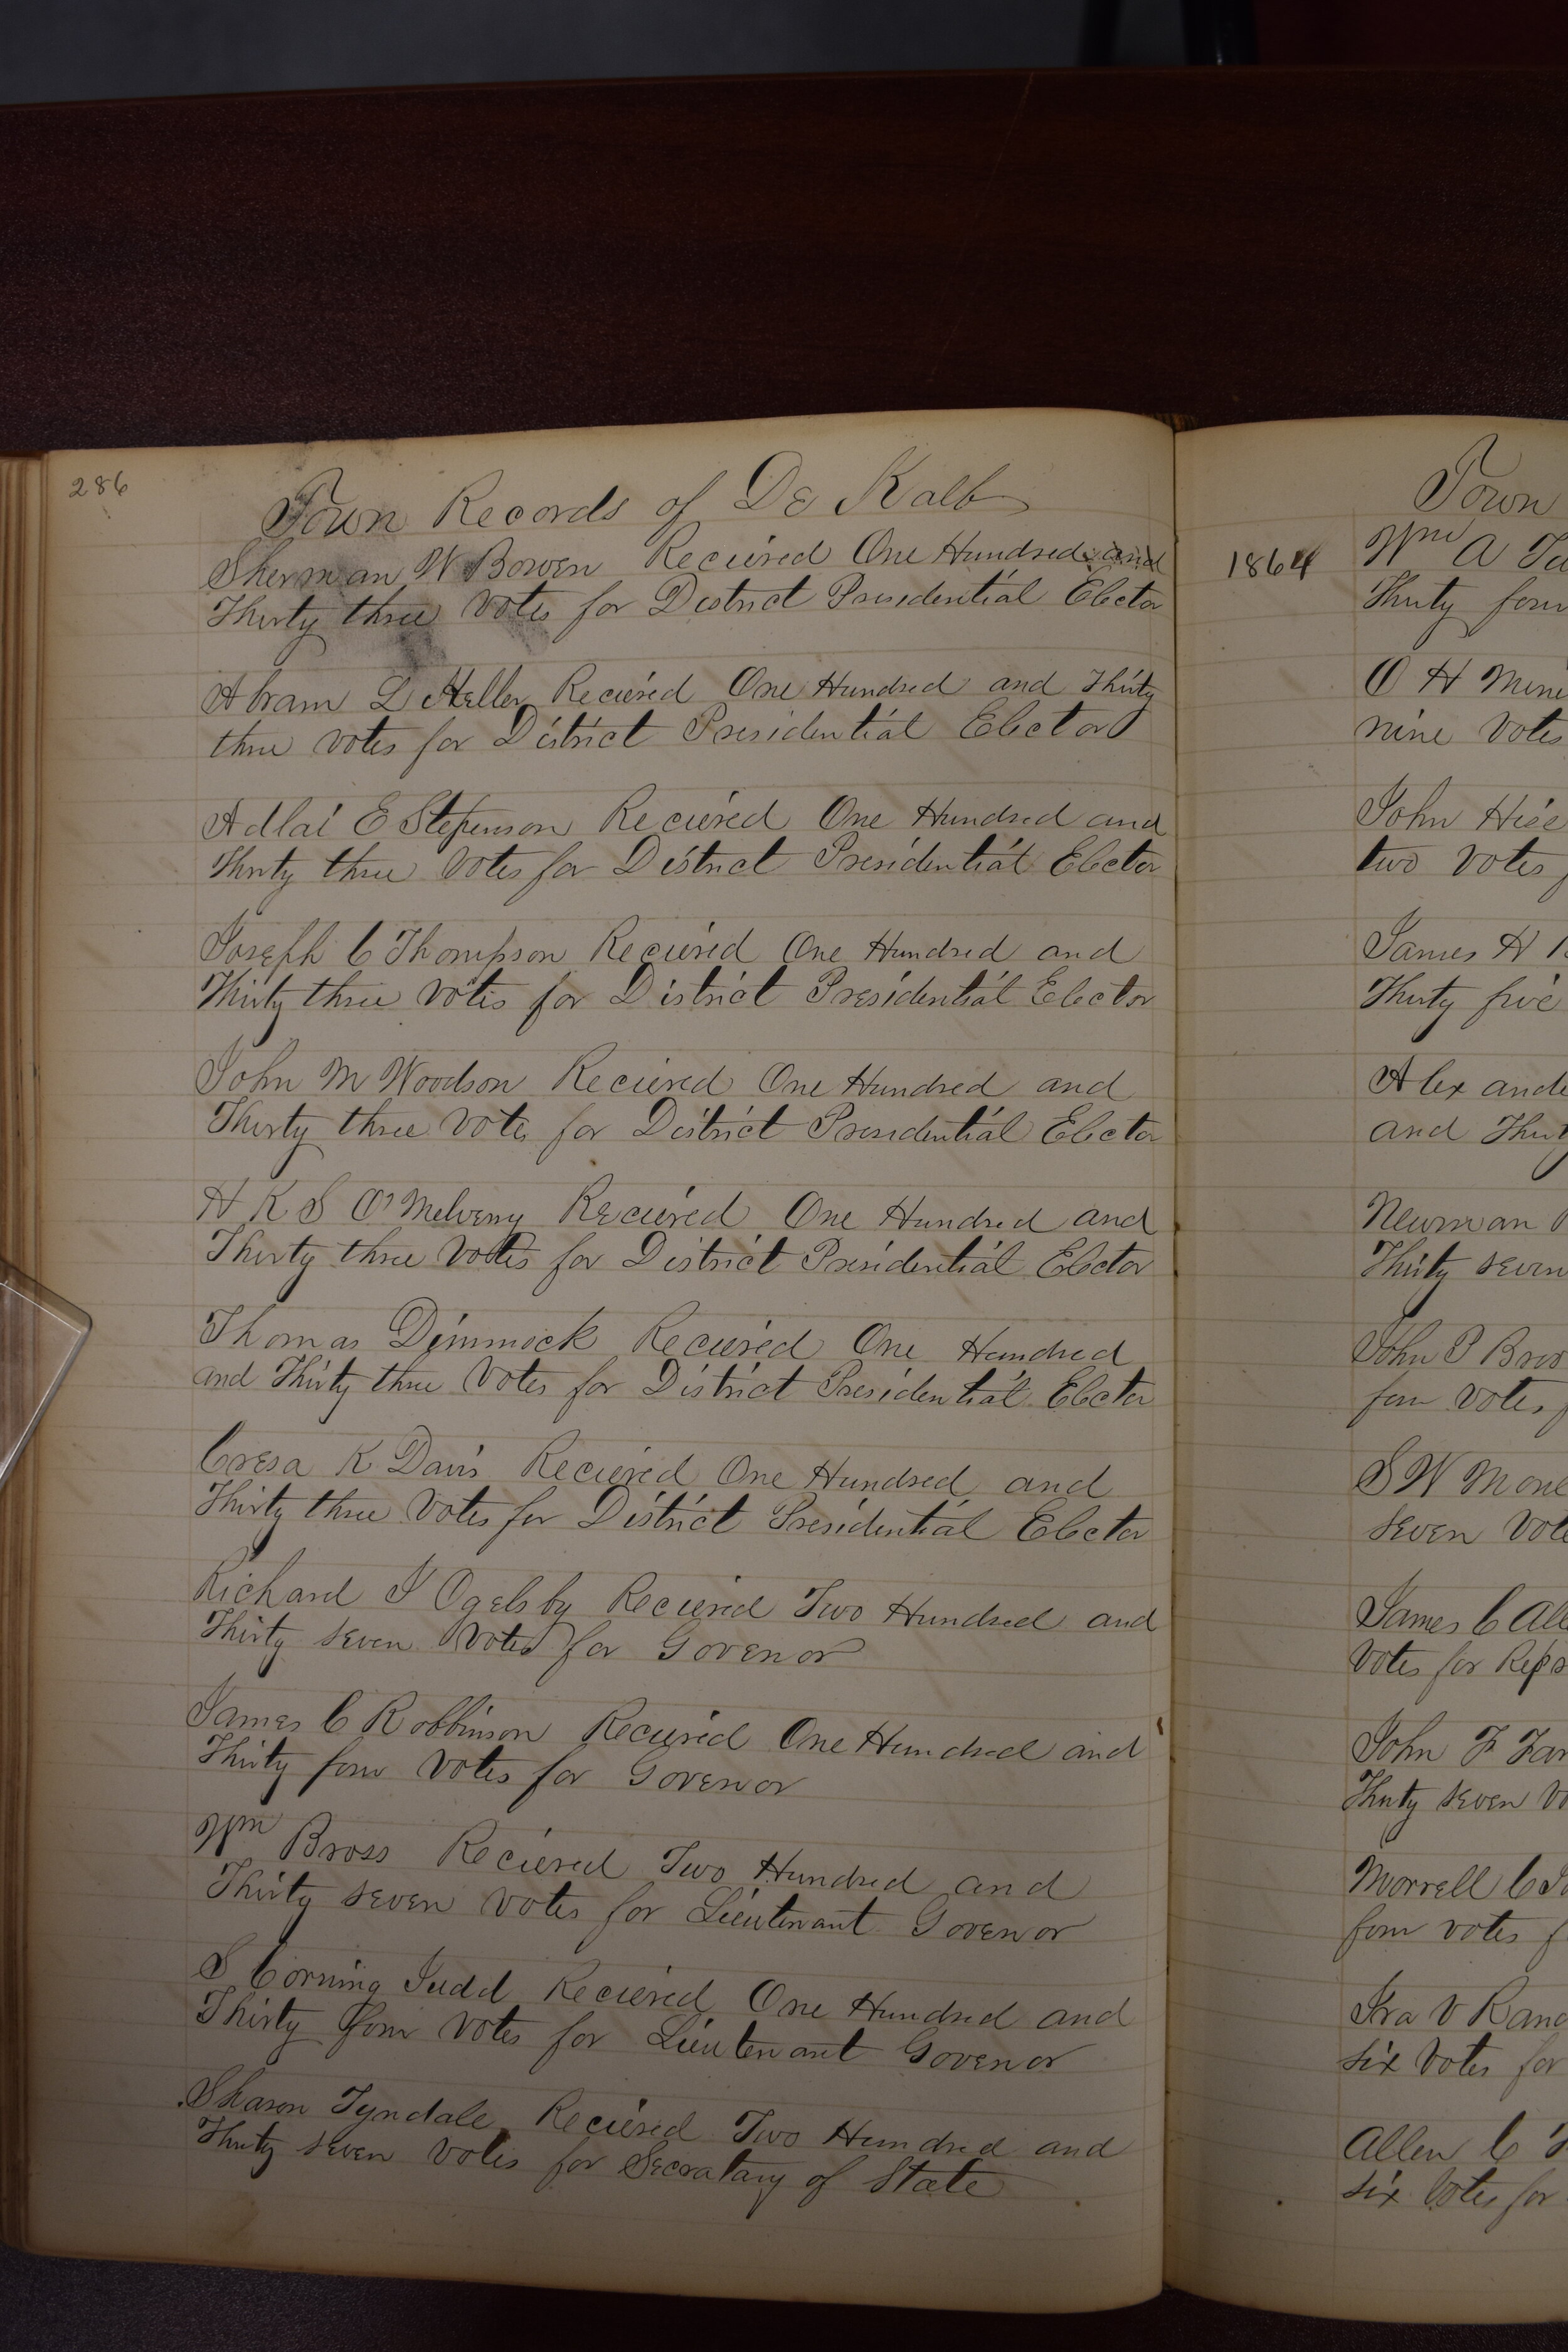 286
Town Records of De Kalb
Sherman W Bowen Recieved One Hundred and
Thirty three Votes for District Presidential Elector
Abram L Keller Recieved One Hundred and Thirty
three votes for District Presidential Elector
Adlai E Stepenson Recieved One Hundred and
Thirty three Votes for District Presidential Elector
Joseph C Thompson Recieved One Hundred and
Thirty three Votes for District Presidential Elector
John M Woodson Recieved One Hundred and
Thirty three Votes for District Presidential Elector
H K S O'Melveny Recieved One Hundred and
Thirty three Votes for District Presidential Elector
Thomas Dimmock Recieved One Hundred
and Thirty three Votes for District Presidential Elector
Cresa K Davis Recieved One Hundred and
Thirty three Votes for District Presidential Elector
Richard J Ogelsby Recieved Two Hundred and
Thirty seven Votes for Govenor
James C Robbinson Recieved One Hundred and
Thirty four Votes for Govenor
Wm Bross Recieved Two Hundred and
Thirty seven votes for Lieutenant Govenor
S Corning Judd Recieved One Hundred and
Thirty four Votes for Lieutenant Govenor
Sharon Tyndale Recieved Two Hundred and
Thirty seven Votes for Secratary of State
Town
1864
Wm A
Thirty four
O H
nine Votes
John Hise
two Votes
James H
Thirty five
Alexande
and Thirty
Newman
Thirty seven
John P
four Votes
S W
seven Vote
James C
Votes for
John F
Thirty seven
Morrell C
four votes
Ira V
six Votes for
Allen C
six Votes for